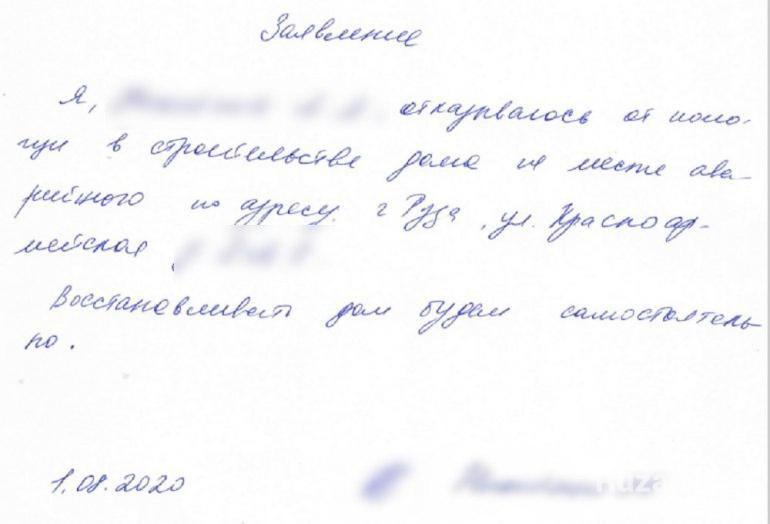 Заявление
Я, отказываюсь от помо-
щи в строительстве дома на месте ава-
рийного по адресу: г Руза, ул. Красноар-
мейская
Восстанавливать дом будем самостоятель-
но.
1.08.2020